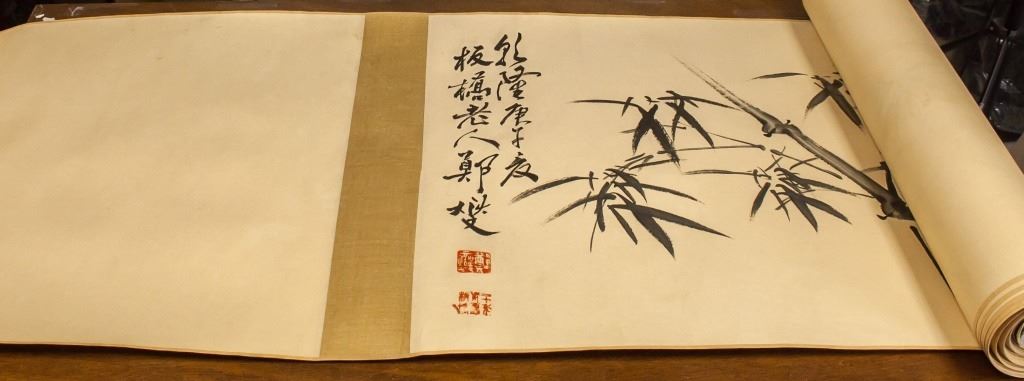 乾隆庚午夏
板橋老人鄭燮